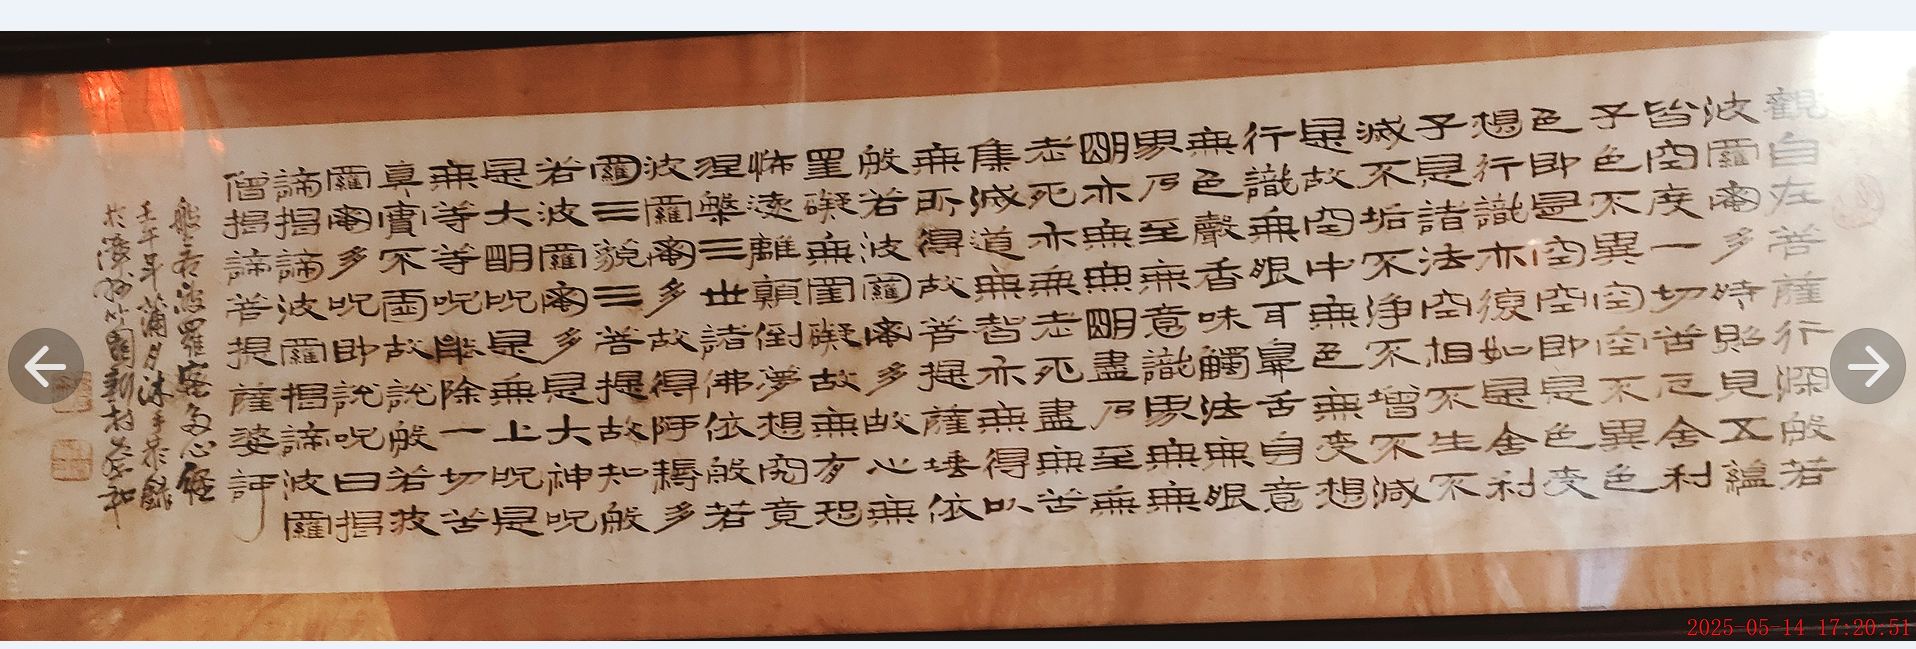 觀自在菩薩行深般若
波羅蜜多時照見五蘊
皆空度一切苦厄舍利
子色不異空空不異色
色即是空空即是色受
想行識亦復如是舍利
子是諸法空相不生不
滅不垢不淨不增不減
是故空中無色無受想
行識無眼耳鼻舌自意
無色聲香味觸法無眼
界乃至無意識界無無
明亦無無明盡乃至無
老死亦無老死盡無苦
集滅道無智亦無得以
無所得故菩提薩埵依
般若波羅蜜多故心無
罣礙無罣礙故無有恐
怖遠離顛倒夢想究竟
涅槃三世諸佛依般若
波羅蜜多故得阿耨多
羅三藐三菩提故知般
若波羅蜜多是大神呪
是大明呪是無上呪是
無等等呪能除一切苦
真實不虛故說般若波
羅蜜多呪即說呪曰揭
諦揭諦波羅揭諦波羅
僧揭諦菩提薩婆訶
般若波羅蜜多心經
壬午年蒲月沐手恭錄
於漳州竹園新村
2025-05-14 17:20:51